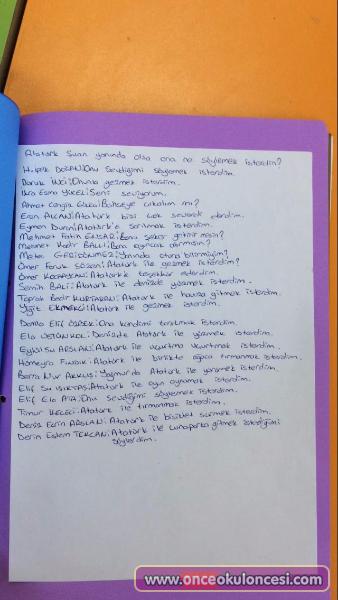 Atatürk Şuan yanında olsa ona ne söylemek isterdin?
DOĞAN: Onu Sevdiğimi söylemek isterdim.
Doruk İNCİ: Onunla gezmek isterdim.
Esma YÜKEL: Seni seviyorum.
Ahmet Cengiz Bahçeye çıkalım mı?
Eren ALCAN: Atatürk bizi çok severdi derdim.
Eymen Atatürk'e Sarılmak isterdim.
Mehmet Fatih Bana şeker getirir misin?
Mehmet Kadir BALLI: Bana oyuncak alırmısın?
Mete GERİDÖNMEZ: Yanında otura bilirmiyim?
Ömer Faruk SÖZEN: Atatürk ile gezmek isterdim?
Ömer KOCAPOSACI: Atatürk'e teşekkür ederdim.
Semih BALİ: Atatürk ile denizde yüzmek isterdim.
Toprak Bedir KURTARAN: Atatürk ile havuza gitmek isterdim.
Yiğit EKMEKCİ: Atatürk ile gezmek isterdim.
Damla Elif ÖZBEK: Ona kendimi tanıtmak isterdim.
Ela Denizde Atatürk ile yüzmek isterdim.
Eylül Su ARSLAN: Atatürk ile uçurtma uçurtmak isterdim.
Hümeyra Atatürk ile birlikte ağaca tırmanmak isterdim.
Berra Nur AKKUŞ: Yağmurda Atatürk ile yürümek isterdim.
Elif Su IŞIKTAŞ: Atatürk ile oyun oynamak isterdim.
Elif Ela ATA: Onu sevdiğimi söylemek isterdim.
Timur KECECİ: Atatürk ile tırmanmak isterdim.
Deniz Ecrin ARSLAN: Atatürk ile bisiklet sürmek isterdim.
Derin Eslem TERCAN: Atatürk ile lunaparka gitmek istediğimi
söylerdim.
www.onceokuloncesi.com